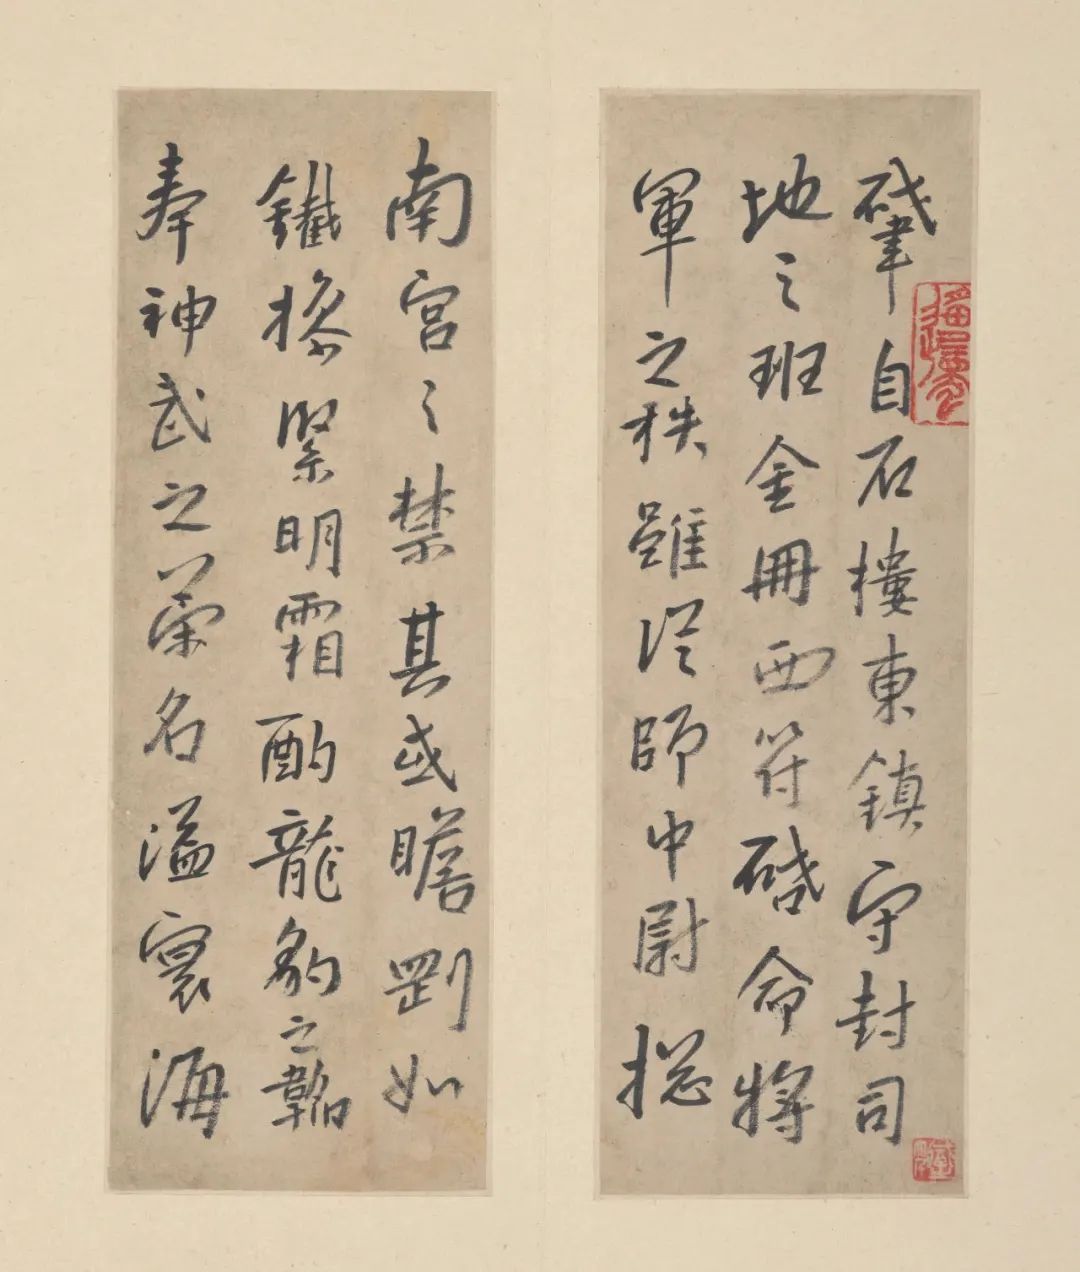 肇自石樓東鎮守封司
地之班金冊西符啓命將
軍之秩雖從師中尉揔
南宮之禁其或瞻𠛬如
鐵操緊明霜酌龍豹之韜
奉神武之略名溢寰海